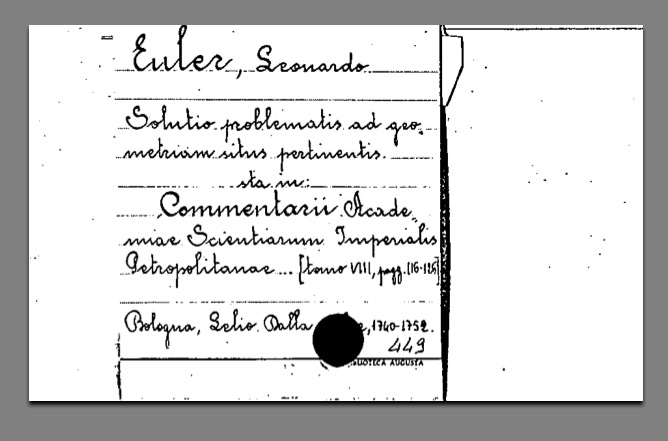 Euler, Leonardo
Solutio problematis ad geo-
metriam situs pertinentis.
sta in:
Commentarii Acade-
miae Scientiarum Imperialis
Petropolitanae... [tomo VIII, pagg.
Bologna, Lelio Dalla 1740-1752.
449
AUGUSTA